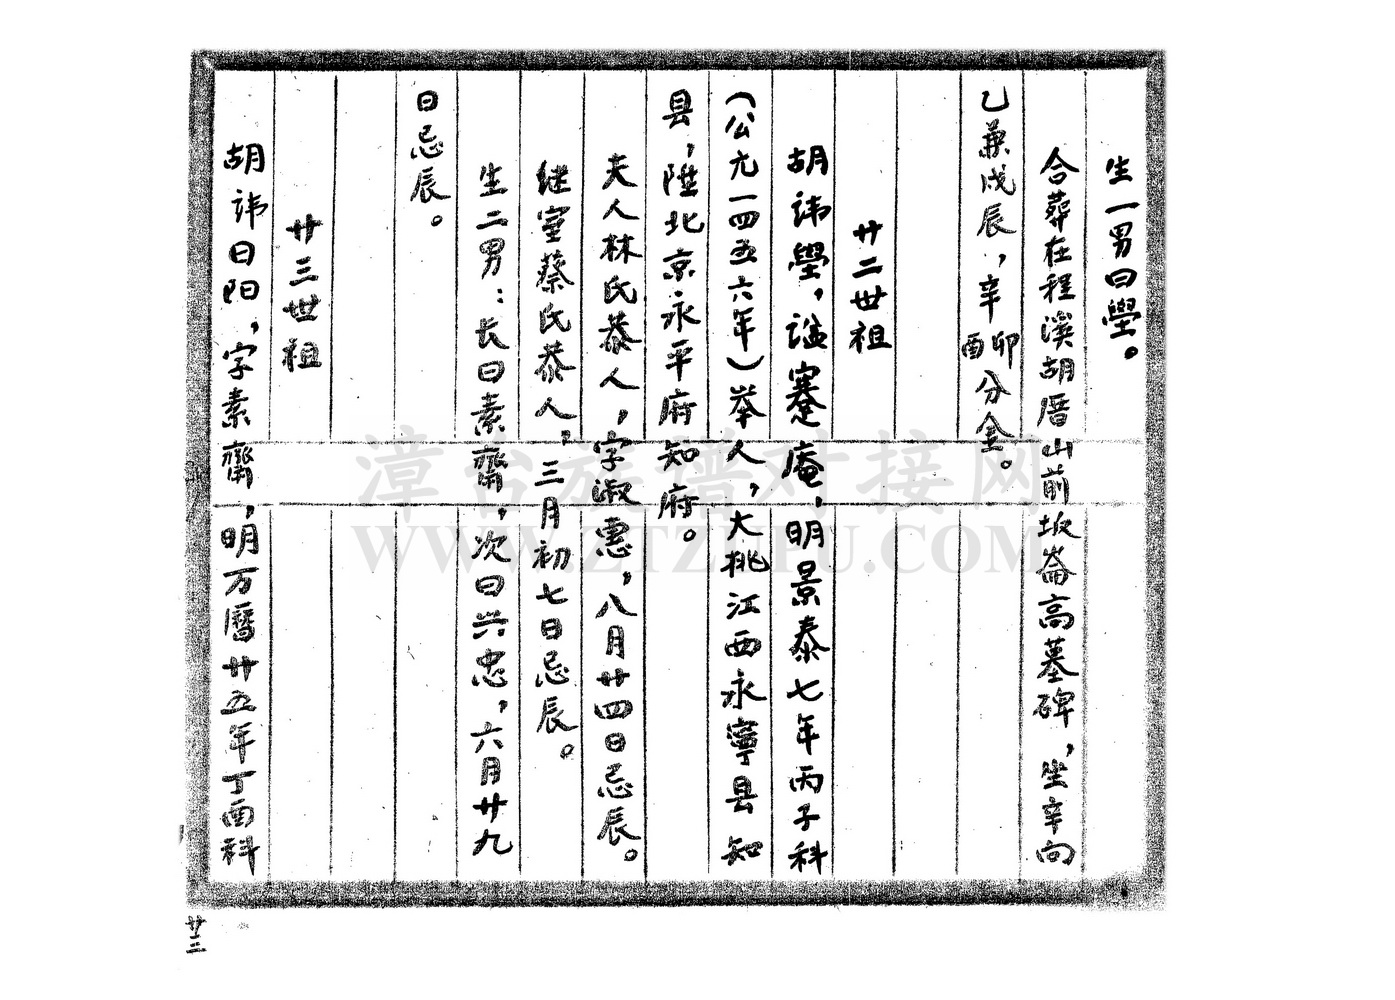 生一男曰壆。
合葬在程溪胡厝山前坂崙高墓碑，坐辛向
乙兼戌辰，辛卯酉分金。
廿二世祖
胡讳壆，谥蹇庵，明景泰七年丙子科
（公元一四五六年）举人，大挑江西永寧县知
县，陞北京永平府知府。
夫人林氏恭人，字淑惠，八月廿四日忌辰。
继室蔡氏恭人，三月初七日忌辰。
生二男：长曰素齋，次曰兴忠，六月廿九
日忌辰。
廿三世祖
胡讳日阳，字素齋，明万曆廿五年丁酉科
廿二
漳台族谱对接网
WWW.ZTZUPU.COM